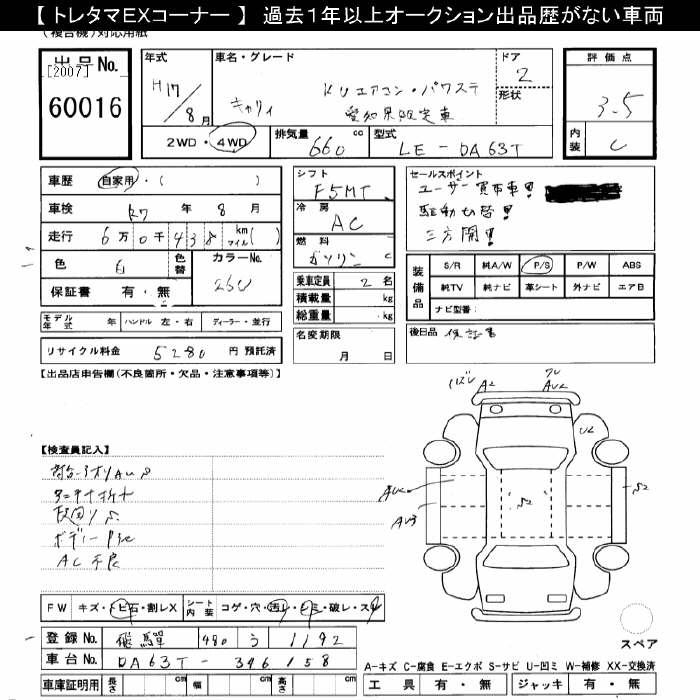 【 トレタマEXコーナー 】 過去１年以上オークション出品歴がない車両
(複合機)対応用紙
出品No.
[2007]
60016
年式
H17/8月
車名・グレード
キャリイ
KUエアコン・パワステ
愛知県限定車
ドア
2
形状
評価点
3.5
内装
C
2WD・4WD
排気量
660
cc
型式
LE-DA63T
車歴
自家用・( )
車検
R7 年 8 月
走行
6万0千438
km
マイル( )
色
白
色替
カラーNo.
26U
保証書 有・無
モデル年式 年
ハンドル 左・右
ディーラー・並行
リサイクル料金 5280 円 預託済
シフト
F5MT
冷房
AC
燃料
ガソリン
乗車定員 2 名
積載量 kg
総重量 kg
名変期限
月 日
セールスポイント
ユーザー買取車!!
駆動切替!!
三方開!!
装備品
S/R 純A/W P/S P/W ABS
純TV 純ナビ 革シート 外ナビ エアB
ナビ型番:
後日品 保証書
【出品店申告欄(不良箇所・欠品・注意事項等)】
【検査員記入】
AC不良
A2
U2
AU2
AU3
S2
S2
FW キズ・トビ石・割レX
シート内装 コゲ・穴・汚レ・シミ・破レ・スレ
登録No. 飛騨 480 う 1192
車台No. DA63T-396158
車庫証明用 長さ cm 幅 cm 高さ cm
スペア
A-キズ C-腐食 E-エクボ S-サビ U-凹ミ W-補修 XX-交換済
工具 有・無 ジャッキ 有・無